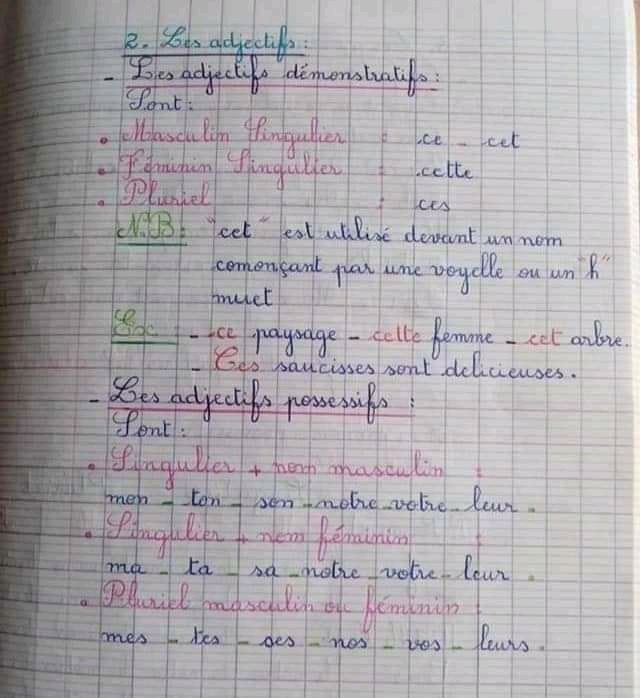 2. Les adjectifs:
- Les adjectifs démonstratifs:
Sont:
• Masculin Singulier : ce - cet
• Féminin Singulier : cette
• Pluriel : ces
N.B: "cet" est utilisé devant un nom
començant par une voyelle ou un "h"
muet
Ex: - ce paysage - cette femme - cet arbre.
- Ces saucisses sont delicieuses.
- Les adjectifs possessifs:
Sont:
• Singulier + nom masculin :
mon - ton - son - notre - votre - leur.
• Singulier + nom féminin :
ma - ta - sa - notre - votre - leur.
• Pluriel masculin ou féminin :
mes - tes - ses - nos - vos - leurs.